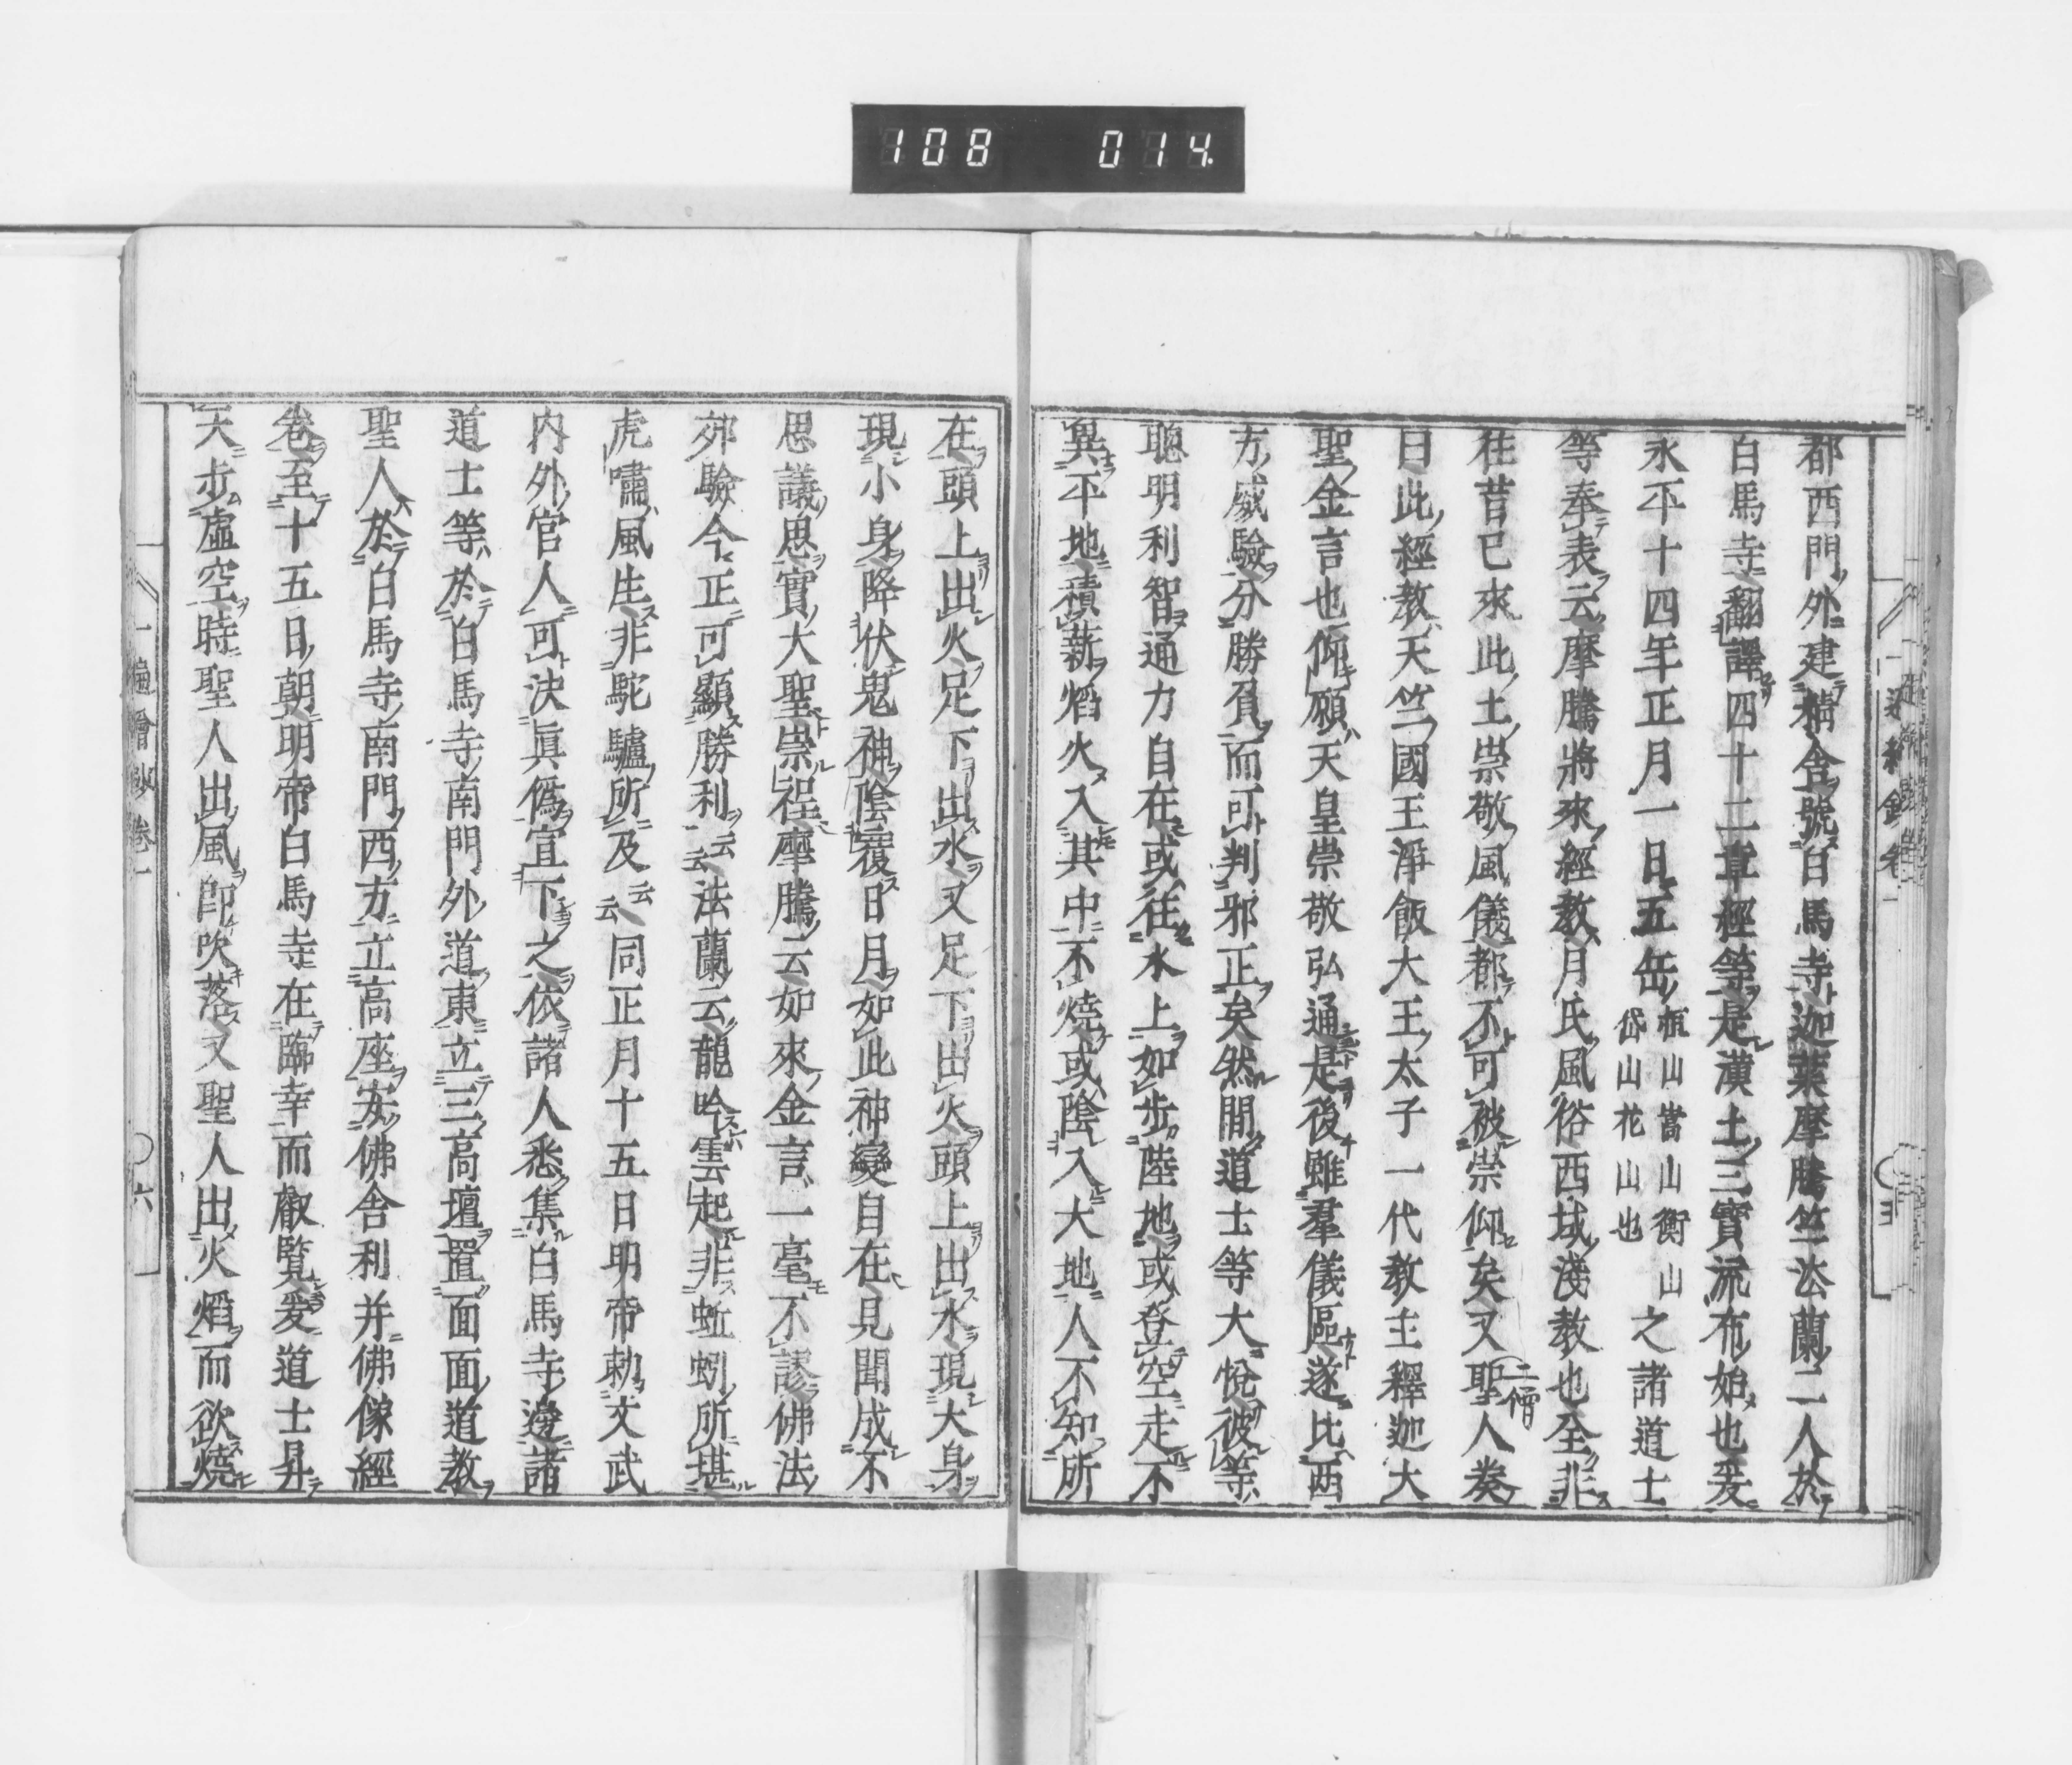 108 014
都西門外建精舍號白馬寺迦葉摩騰竺法蘭二人於
白馬寺翻譯四十二章經等是漢土三寶流布始也爰
永平十四年正月一日五岳恒山嵩山衡山岱山花山也之諸道士
等奉表云摩騰將來經教月氏風俗西域淺教也全非
往昔已來此土崇敬風儀都不可被崇仰矣又聖人二僧奏
曰此經教天竺國王淨飯大王太子一代教主釋迦大
聖金言也仰願天皇崇敬弘通是後雖羣儀區遂比西
方威驗分勝負而可判邪正矣然間道士等大悅彼等
聰明利智通力自在或往水上如步陸地或登空走不
異平地積薪焰火入其中不燒或陰入大地人不知所
在頭上出火足下出水又足下出火頭上出水現大身
現小身降伏鬼神陰覆日月如此神變自在見聞成不
思議思實大聖崇程摩騰云如來金言一毫不謬佛法
效驗今正可顯勝利云云法蘭云龍吟雲起非蚯蚓所堪
虎嘯風生非駝驢所及云云同正月十五日明帝勅文武
內外官人可決眞僞宣下之依諸人悉集白馬寺邊諸
道士等於白馬寺南門外道東立三高壇置面面道教
聖人於白馬寺南門西方立高座安佛舍利并佛像經
卷至十五日朝明帝白馬寺在臨幸而叡覽爰道士昇
天步虛空時聖人出風卽吹落又聖人出火焰而欲燒
一遍繪鈔卷一
六